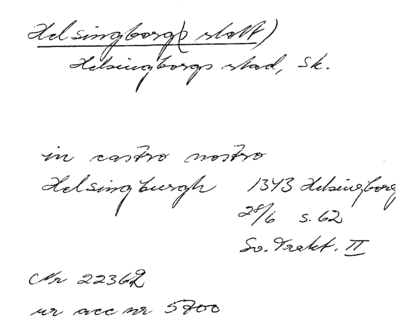 Helsingborg(s slott)
Helsingborgs stad, Sk.
in castro nostro
Helsingburgh 1343 Helsingborg
28/6 s. 62
Sv. Trakt. II
Nr 22362
ur acc nr 5700